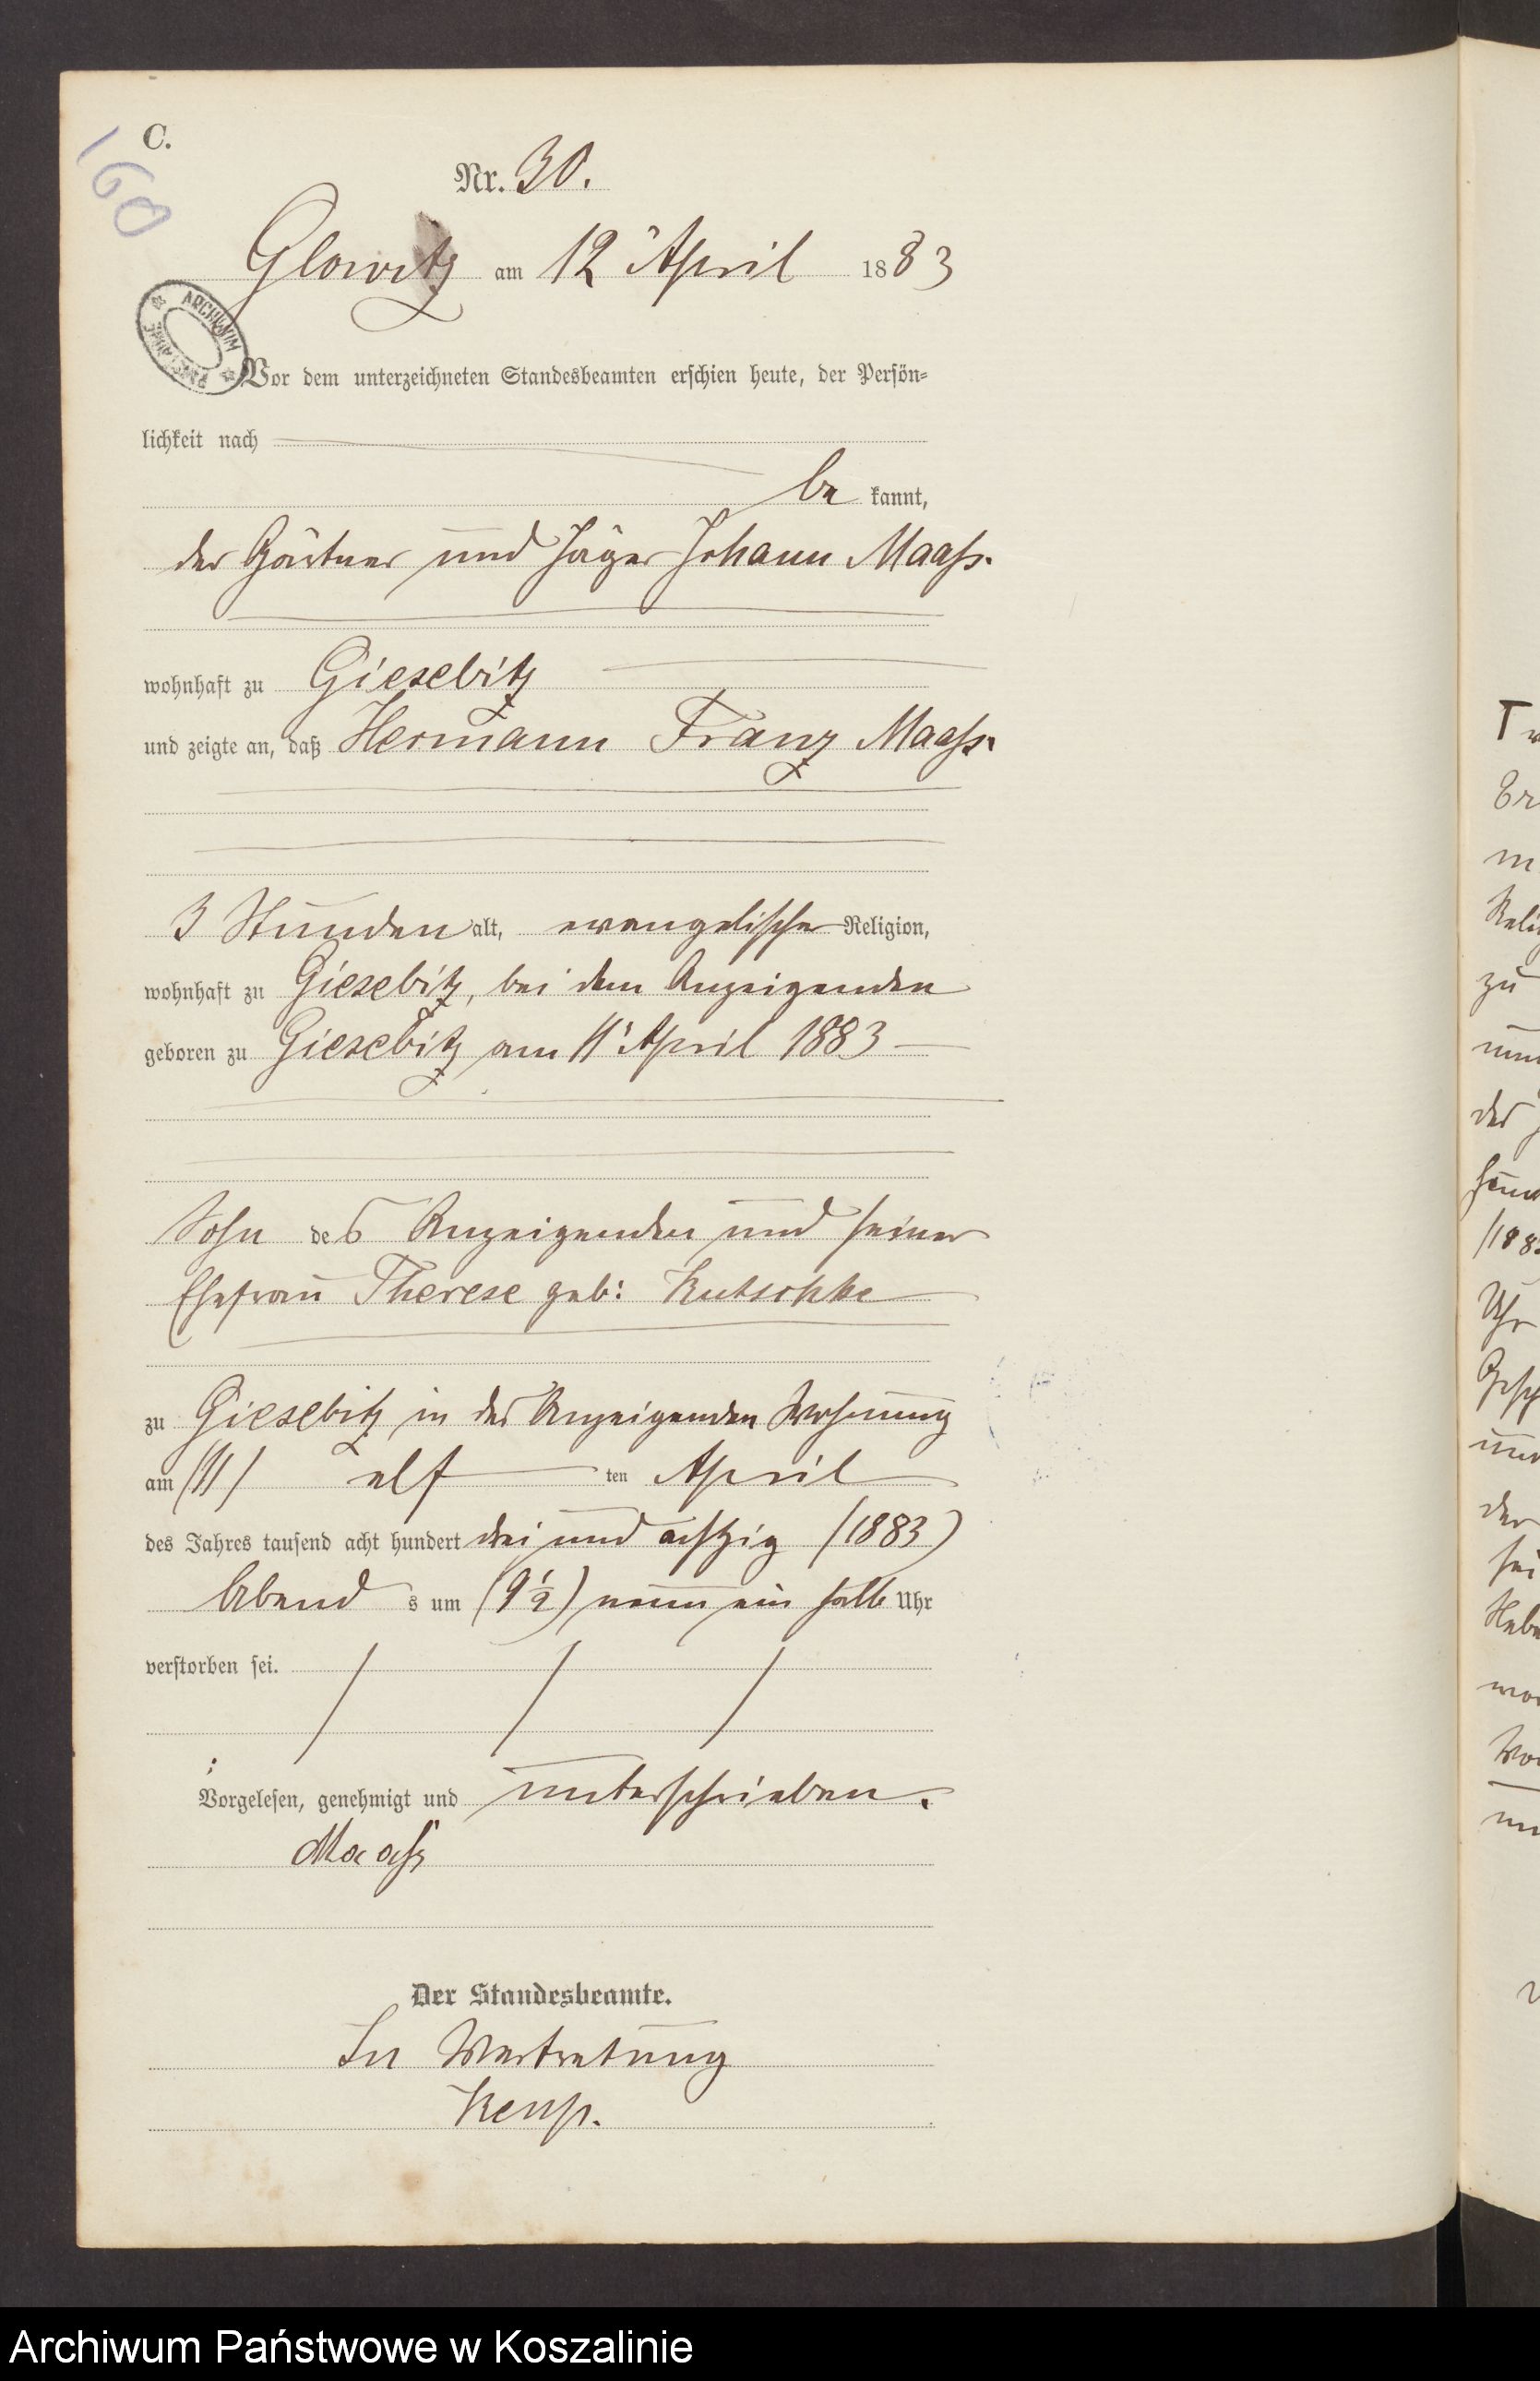 C.
160
Nr. 30.
Glowitz am 12' April 1883
ARCHIWUM PAŃSTWOWE
Vor dem unterzeichneten Standesbeamten erschien heute, der Persön-
lichkeit nach
be kannt,
der Gärtner und Jäger Johann Maaß.
wohnhaft zu Giesebitz
und zeigte an, daß Hermann Franz Maaß.
3 Stunden alt, evangelischer Religion,
wohnhaft zu Giesebitz, bei dem Anzeigenden
geboren zu Giesebitz am 11' April 1883
Sohn des Anzeigenden und seiner
Ehefrau Therese geb: Kutschke
zu Giesebitz in des Anzeigenden Wohnung
am /11/ elf ten April
des Jahres tausend acht hundert drei und achtzig (1883)
Abend s um (9½) neun ein halb Uhr
verstorben sei.
Vorgelesen, genehmigt und unterschrieben.
Maaß
Der Standesbeamte.
In Vertretung
Archiwum Państwowe w Koszalinie